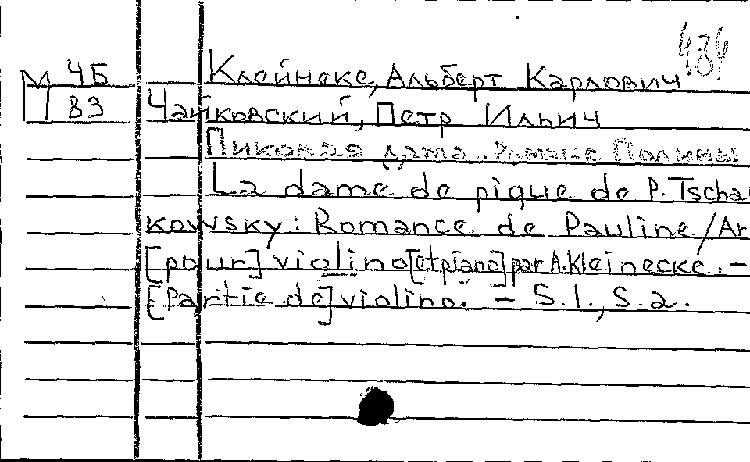 484
М 4Б Клейнеке, Альберт Карлович
П 83 Чайковский, Петр Ильич
Пиковая дама. Романс Полины
La dame de pique de P. Tschai
kowsky: Romance de Pauline / Ar
[pour] violino [et piano] par A. Kleinecke. –
[Partie de] violino. – S. l., S. a.